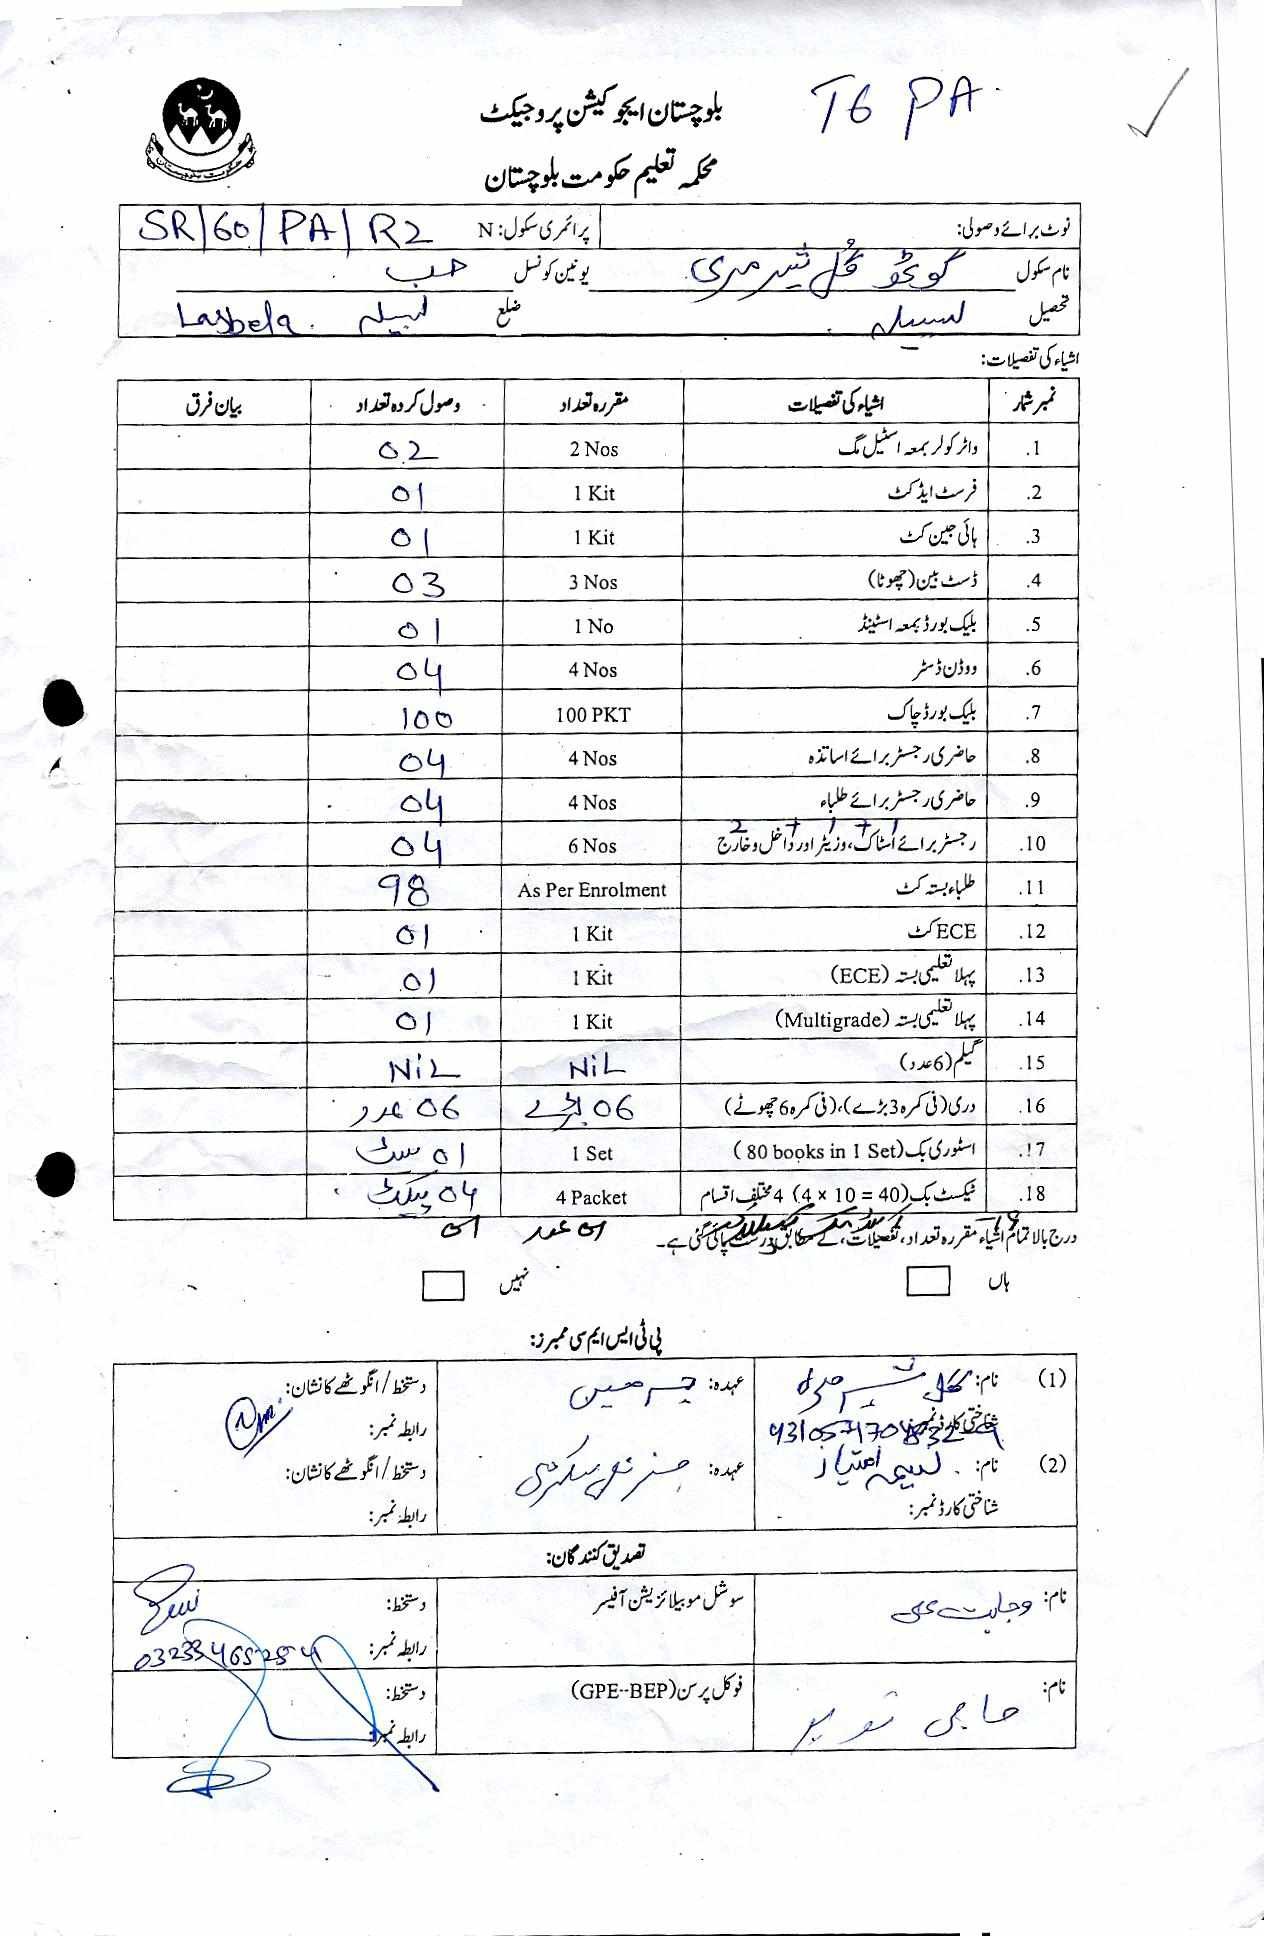 T6 PA
بلوچستان ایجوکیشن پروجیکٹ
محکمہ تعلیم حکومت بلوچستان
نوٹ برائے وصولی: پرائمری سکول: N SR/60/PA/R2
نام سکول گوٹھ گل شیر مری یونین کونسل حب
تحصیل لسبیلہ ضلع لسبیلہ Lasbela
اشیاء کی تفصیلات:
نمبر شمار اشیاء کی تفصیلات مقررہ تعداد وصول کردہ تعداد بیان فرق
1. واٹر کولر بمعہ اسٹیل مگ 2 Nos 02
2. فرسٹ ایڈ کٹ 1 Kit 01
3. ہائی جین کٹ 1 Kit 01
4. ڈسٹ بین (چھوٹا) 3 Nos 03
5. بلیک بورڈ بمعہ اسٹینڈ 1 No 01
6. ووڈن ڈسٹر 4 Nos 04
7. بلیک بورڈ چاک 100 PKT 100
8. حاضری رجسٹر برائے اساتذہ 4 Nos 04
9. حاضری رجسٹر برائے طلباء 4 Nos 04
2 + 1 + 1
10. رجسٹر برائے اسٹاک، وزیٹر اور داخل و خارج 6 Nos 04
11. طلباء بستہ کٹ As Per Enrolment 98
12. ECE کٹ 1 Kit 01
13. پہلا تعلیمی بستہ (ECE) 1 Kit 01
14. پہلا تعلیمی بستہ (Multigrade) 1 Kit 01
15. گیلم (6 عدد) NiL NiL
16. دری (فی کمرہ 3 بڑے)، (فی کمرہ 6 چھوٹے) 06 بڑے 06 عدد
17. اسٹوری بک (80 books in 1 Set) 1 Set 01 سٹ
18. ٹیکسٹ بک (4 × 10 = 40) 4 مختلف اقسام 4 Packet 04 پیکٹ
01 عدد 01
درج بالا تمام اشیاء مقررہ تعداد، تفصیلات، کے مطابق درست پائی گئی ہے۔
ہاں نہیں
پی ٹی ایس ایم سی ممبرز:
(1) نام: گل شیر مری عہدہ: چیرمین دستخط / انگوٹھے کا نشان:
شناختی کارڈ نمبر: رابطہ نمبر:
(2) نام: نسیمہ امتیاز عہدہ: جنرل سیکرٹری دستخط / انگوٹھے کا نشان:
شناختی کارڈ نمبر: رابطہ نمبر:
تصدیق کنندگان:
نام: وجاہت علی سوشل موبیلائزیشن آفیسر دستخط:
رابطہ نمبر:
نام: حاجی فوکل پرسن (GPE--BEP) دستخط:
رابطہ نمبر: